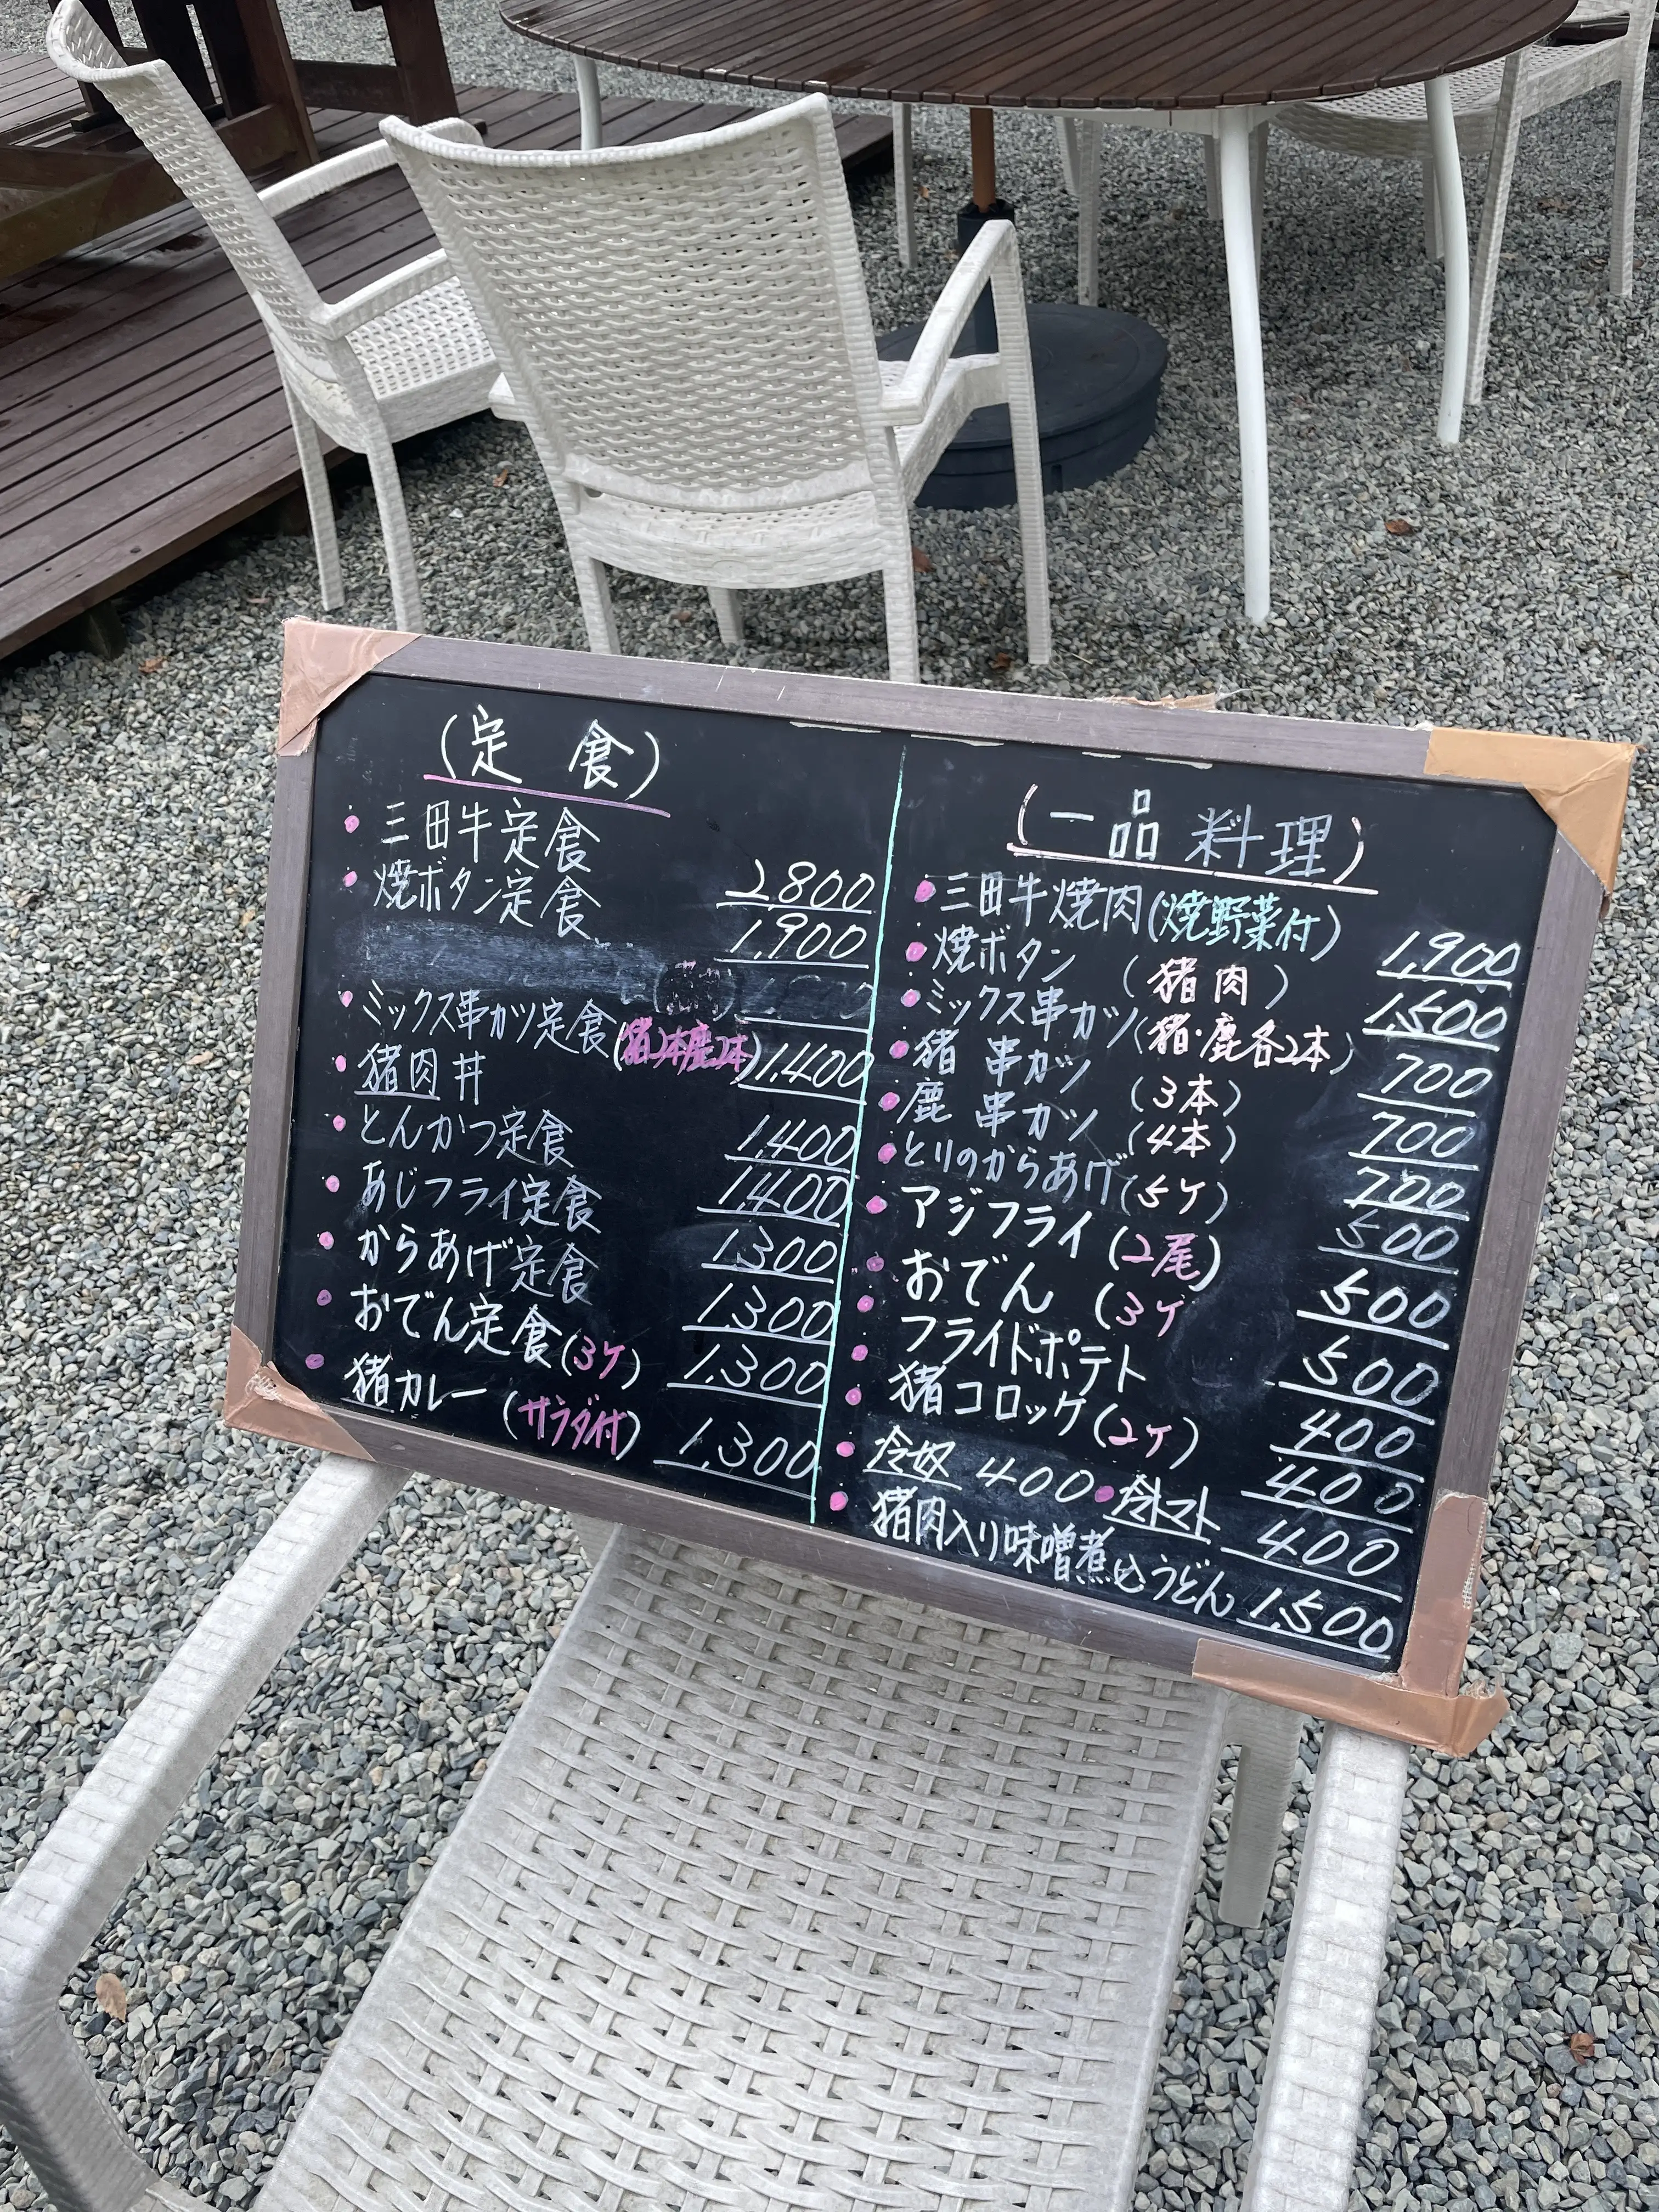 (定 食)
・三田牛定食 2800
・焼ボタン定食 1,900
・ミックス串カツ定食(猪2本鹿2本) 1,400
・猪肉丼 1,400
・とんかつ定食 1,400
・あじフライ定食 1,300
・からあげ定食 1,300
・おでん定食(3ケ) 1,300
・猪カレー (サラダ付) 1,300
(一品料理)
・三田牛焼肉(焼野菜付) 1,900
・焼ボタン (猪肉) 1,500
・ミックス串カツ(猪・鹿各2本) 700
・猪 串カツ (3本) 700
・鹿 串カツ (4本) 700
・とりのからあげ(5ケ) 500
・アジフライ(2尾) 500
・おでん (3ケ 500
・フライドポテト 400
・猪コロッケ(2ケ) 400
・冷奴 400 ・冷トマト 400
・猪肉入り味噌煮込うどん 1,500